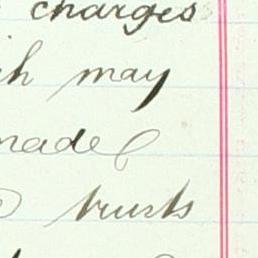 charges
may
made
trusts